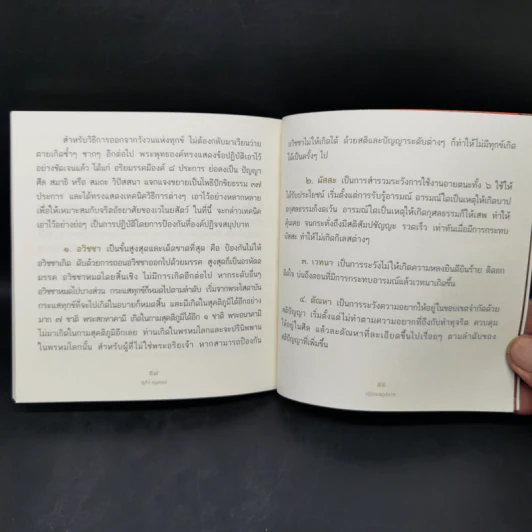 สำหรับวิธีการออกจากวังวนแห่งทุกข์ ไม่ต้องกลับมาเวียนว่าย
ตายเกิดซ้ำๆ ซากๆ อีกต่อไป พระพุทธองค์ทรงแสดงข้อปฏิบัติเอาไว้
อย่างชัดเจนแล้ว ได้แก่ อริยมรรคมีองค์ ๘ ประการ ย่อลงเป็น ปัญญา
ศีล สมาธิ หรือ สมถะ วิปัสสนา แจกแจงขยายเป็นโพธิปักขิยธรรม ๓๗
ประการ และได้ทรงแสดงเทคนิควิธีการต่างๆ เอาไว้อย่างหลากหลาย
เพื่อให้เหมาะสมกับจริตอัธยาศัยของเวไนยสัตว์ ในที่นี้ จะกล่าวเทคนิค
เอาไว้อย่างย่อๆ เป็นการปฏิบัติโดยการป้องกันที่องค์ปฏิจจสมุปบาท
๑. อวิชชา เป็นขั้นสูงสุดและเด็ดขาดที่สุด คือ ป้องกันไม่ให้
อวิชชาเกิด ดับด้วยการถอนอวิชชาออกไปด้วยมรรค สูงสุดก็เป็นอรหัตต
มรรค อวิชชาหมดโดยสิ้นเชิง ไม่มีการเกิดอีกต่อไป หากระดับอื่นๆ
อวิชชาหมดไปบางส่วน กระแสทุกข์ก็หมดไปตามลำดับ เริ่มจากพระโสดาบัน
กระแสทุกข์ที่จะไปเกิดในอบายก็หมดสิ้น และมีเกิดในสุคติภูมิได้อีกอย่าง
มาก ๗ ชาติ พระสกทาคามี เกิดในกามสุคติภูมิได้อีก ๑ ชาติ พระอนาคามี
ไม่มาเกิดในกามสุคติภูมิอีกเลย ท่านเกิดในพรหมโลกและจะปรินิพพาน
ในพรหมโลกนั้น สำหรับผู้ที่ไม่ใช่พระอริยเจ้า หากสามารถป้องกัน
อวิชชาไม่ให้เกิดได้ ด้วยสติและปัญญาระดับต่างๆ ก็ทำให้ไม่มีทุกข์เกิด
ได้เป็นครั้งๆ ไป
๒. ผัสสะ เป็นการสำรวมระวังการใช้งานอายตนะทั้ง ๖ ใช้ให้
ได้รับประโยชน์ เริ่มตั้งแต่การรับรู้อารมณ์ อารมณ์ใดเป็นเหตุให้เกิดบาป
อกุศลธรรมก็งดเว้น อารมณ์ใดเป็นเหตุให้เกิดกุศลธรรมก็ให้เสพ ทำให้
คุ้นเคย จนกระทั่งถึงมีสติสัมปชัญญะ รวดเร็ว เท่าทันเมื่อมีการกระทบ
ผัสสะ ทำให้ไม่เกิดกิเลสต่างๆ
๓. เวทนา เป็นการระวังไม่ให้เกิดความหลงยินดียินร้าย ติดอก
ติดใจ บ่นถึงตอนที่มีการกระทบอารมณ์แล้วเวทนาเกิดขึ้น
๔. ตัณหา เป็นการระวังความอยากให้อยู่ในขอบเขตจำกัดด้วย
สติปัญญา เริ่มตั้งแต่ไม่ทำตามความอยากที่ถึงกับทำทุจริต ควบคุม
ให้อยู่ในศีล แล้วละตัณหาที่ละเอียดขึ้นไปเรื่อยๆ ตามลำดับของ
สติปัญญาที่เพิ่มขึ้น